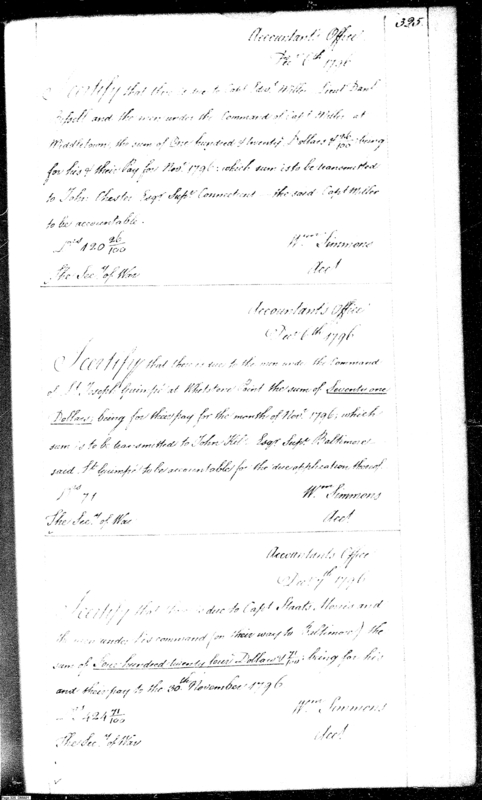 325.
Accountants Office
6th 1796
I certify that there is due to Capt Edwd Miller Lieut Danl
and the men under the Command of Capt Miller at
Middletown, the sum of One hundred & twenty Dollars & 26/100: being
for his & their Pay for Novr 1796: which sum is to be transmitted
to John Chester Esqr Supr Connecticut the said Capt Miller
to be accountable.
420 26/100
Wm Simmons
The Secy of War
Acct
Accountants Office
Decr 6th 1796
I certify that there is due to the men under the Command
of Lt Joseph at Whetstone Point the sum of Seventy one
Dollars; being for their pay for the month of Novr 1796; which
sum is to be transmitted to John Esqr Supr Baltimore
said Lt to be accountable for the due application thereof.
Drs 71
Wm Simmons
The Secy of War
Acct
Accountants Office
Decr 7th 1796
I certify that there is due to Capt Staats Morris and
the men under his command (on their way to Baltimore) the
sum of Four hundred twenty four Dollars & 71/100: being for his
and their pay to the 30th November 1796
424 71/100
Wm Simmons
The Secy of War
Acct